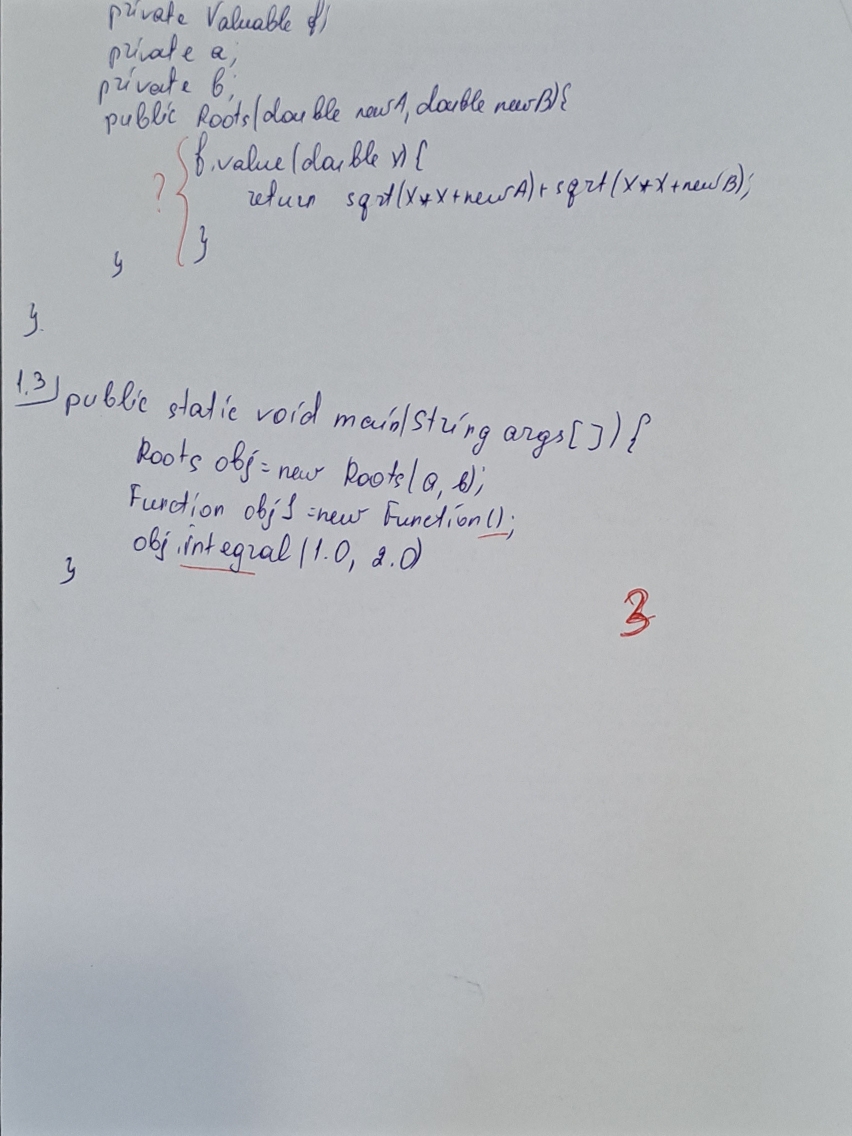 private Valuable f;
private a;
private b;
public Roots(double newA, double newB){
? { f.value(double x){
return sqrt(x*x+newA)+sqrt(x*x+newB);
}
}
}.
1.3) public static void main(String args[]){
Roots obj=new Roots(a, b);
Function obj1=new Function();
obj.integral(1.0, 2.0)
}
3